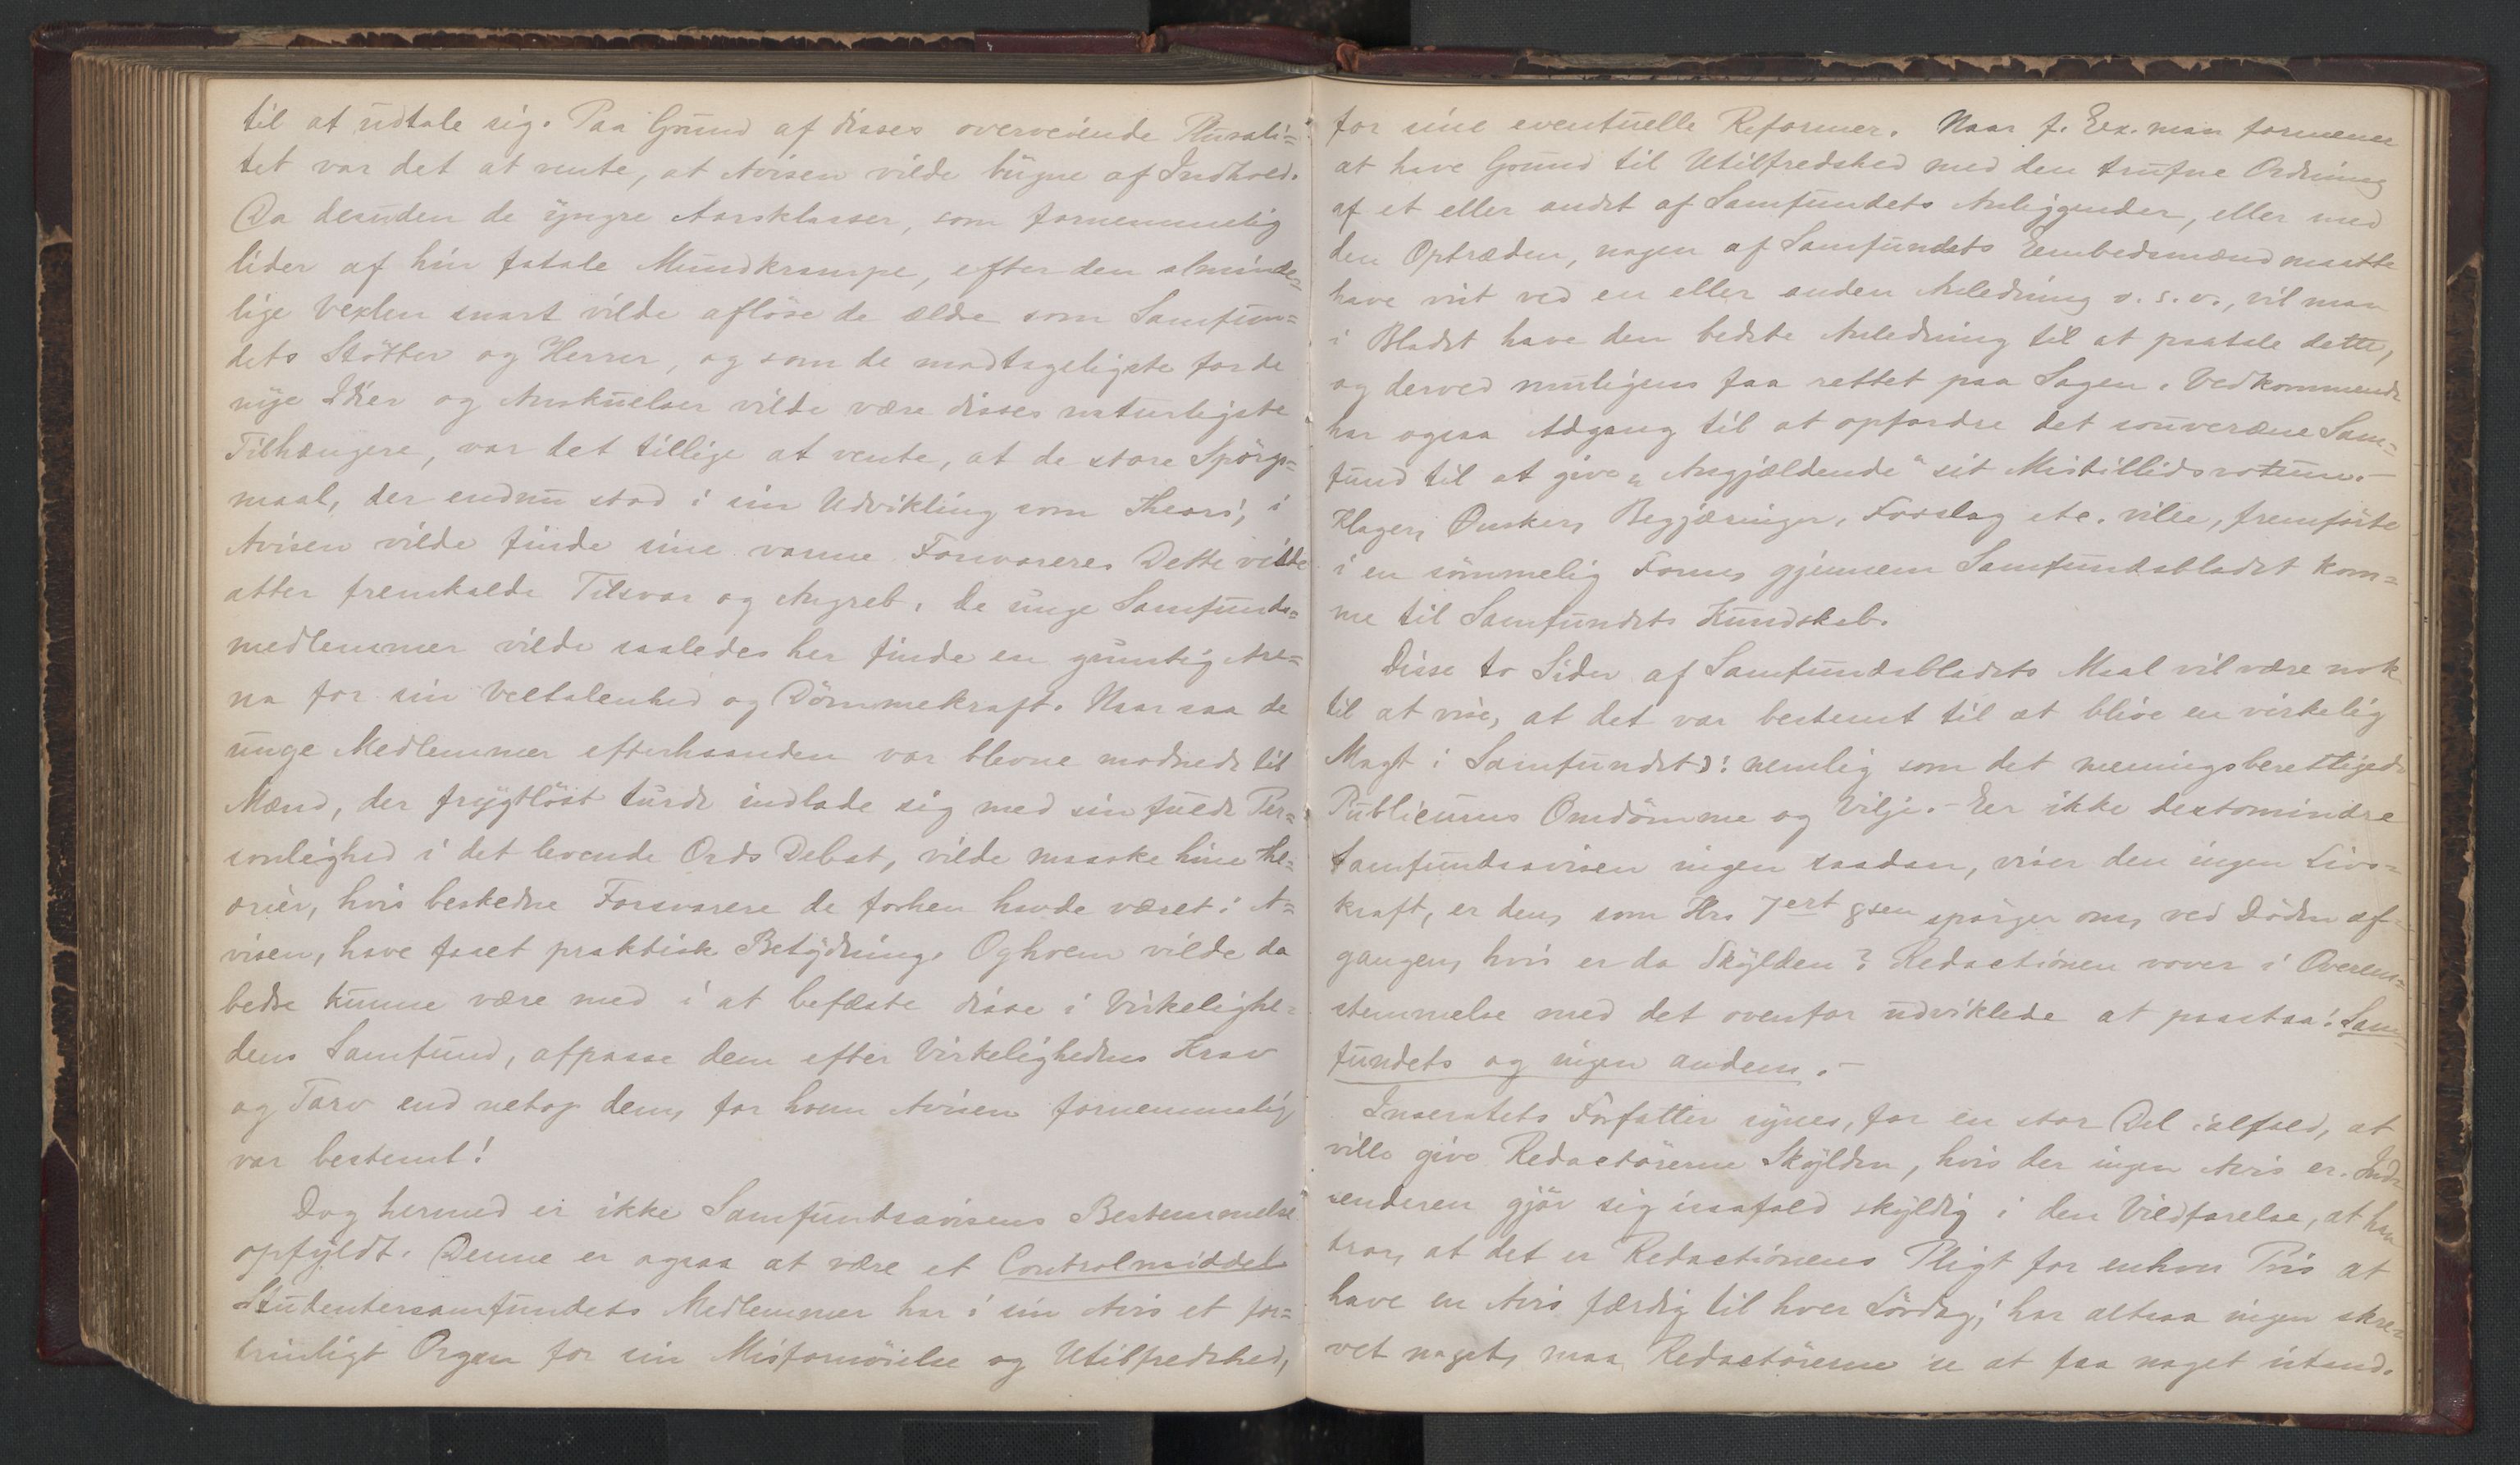 til at udtale sig. Paa Grund af disses overveiende Plurali=
tet var det at vente, at Avisen vilde bugne af Indhold.
Da desuden de yngre Aarsklasser, som fornemmelig
lider af hin fatale Mundkrampe, efter den alminde=
lige Vexlen snart vilde afløse de ældre som Samfun=
dets Støtter og Herrer, og som de modtageligste for de
nye Ideer og Anskuelser vilde være disses naturligste
Tilhængere, var det tillige at vente, at de store Spørgs=
maal, der endnu stod i sin Udvikling som Theori, i
Avisen vilde finde sine varme Forsvarere. Dette vilde
atter fremkalde Tilsvar og Angreb, de unge Samfunds=
medlemmer vilde saaledes her finde en gunstig Are=
na for sin Veltalenhed og Dømmekraft. Naar saa de
unge Medlemmer efterhaanden var blevne modnede til
Mænd, der frygtløst turde indlade sig med sin fulde Per=
sonlighed i det levende Ords Debat, vilde maaske hine The=
orier, hvis beskedne Forsvarere de forhen havde været i A=
visen, have faaet praktisk Betydning. Og hvem vilde da
bedre kunne være med i at befæste disse i Virkelighe=
dens Samfund, afpasse dem efter Virkelighedens Krav
og Tarv end netop dem, for hvem Avisen fornemmelig
var bestemt!
Dog hermed er ikke Samfundsavisens Bestemmelse
opfyldt. Denne er ogsaa at være et Controlmiddel.
Studentersamfundets Medlemmer har i sin Avis et for=
trinligt Organ for sin Misfornøielse og Utilfredshed,
for sine eventuelle Reformer. Naar f. Eex. man formener
at have Grund til Utilfredshed med den trufne Ordning
af et eller andet af Samfundets Anliggender, eller med
den Optræden, nogen af Samfundets Eembedsmænd maatte
have vist ved en eller anden Anledning o. s. v., vil man
i Bladet have den bedste Anledning til at paatale dette,
og derved muligens faa rettet paa Sagen. Vedkommende
har ogsaa Adgang til at opfordre det souveræne Sam=
fund til at give „Angjældende“ sit Mistillidsvotum. —
Klager, Ønsker, Begjæringer, Forslag etc. ville, fremførte
i en sømmelig Form, gjennem Samfundsbladet kom=
me til Samfundets Kundskab.
Disse to Sider af Samfundsbladets Maal vil være nok
til at vise, at det var bestemt til at blive en virkelig
Magt i Samfundet ɔ: nemlig som det meningsberettigede
Publicums Omdømme og Vilje. — Eer ikke destomindre
Samfundsavisen ingen saadan, viser den ingen Livs=
kraft, er den, som Hrr 7ert 8sen spørger om, ved Døden af=
gangen, hvis er da Skylden? Redactionen vover i Overens=
stemmelse med det ovenfor udviklede at paastaa: Sam=
fundets og ingen andens. —
Inseratets Forfatter synes, for en stor Del ialfald, at
ville give Redactørerne Skylden, hvis der ingen Avis er. Ind=
senderen gjør sig isaafald skyldig i den Vildfarelse, at han
tror, at det er Redactionens Pligt for enhver Pris at
have en Avis færdig til hver Lørdag; har altsaa ingen skre=
vet noget, maa Redactørerne se at faa noget istand.